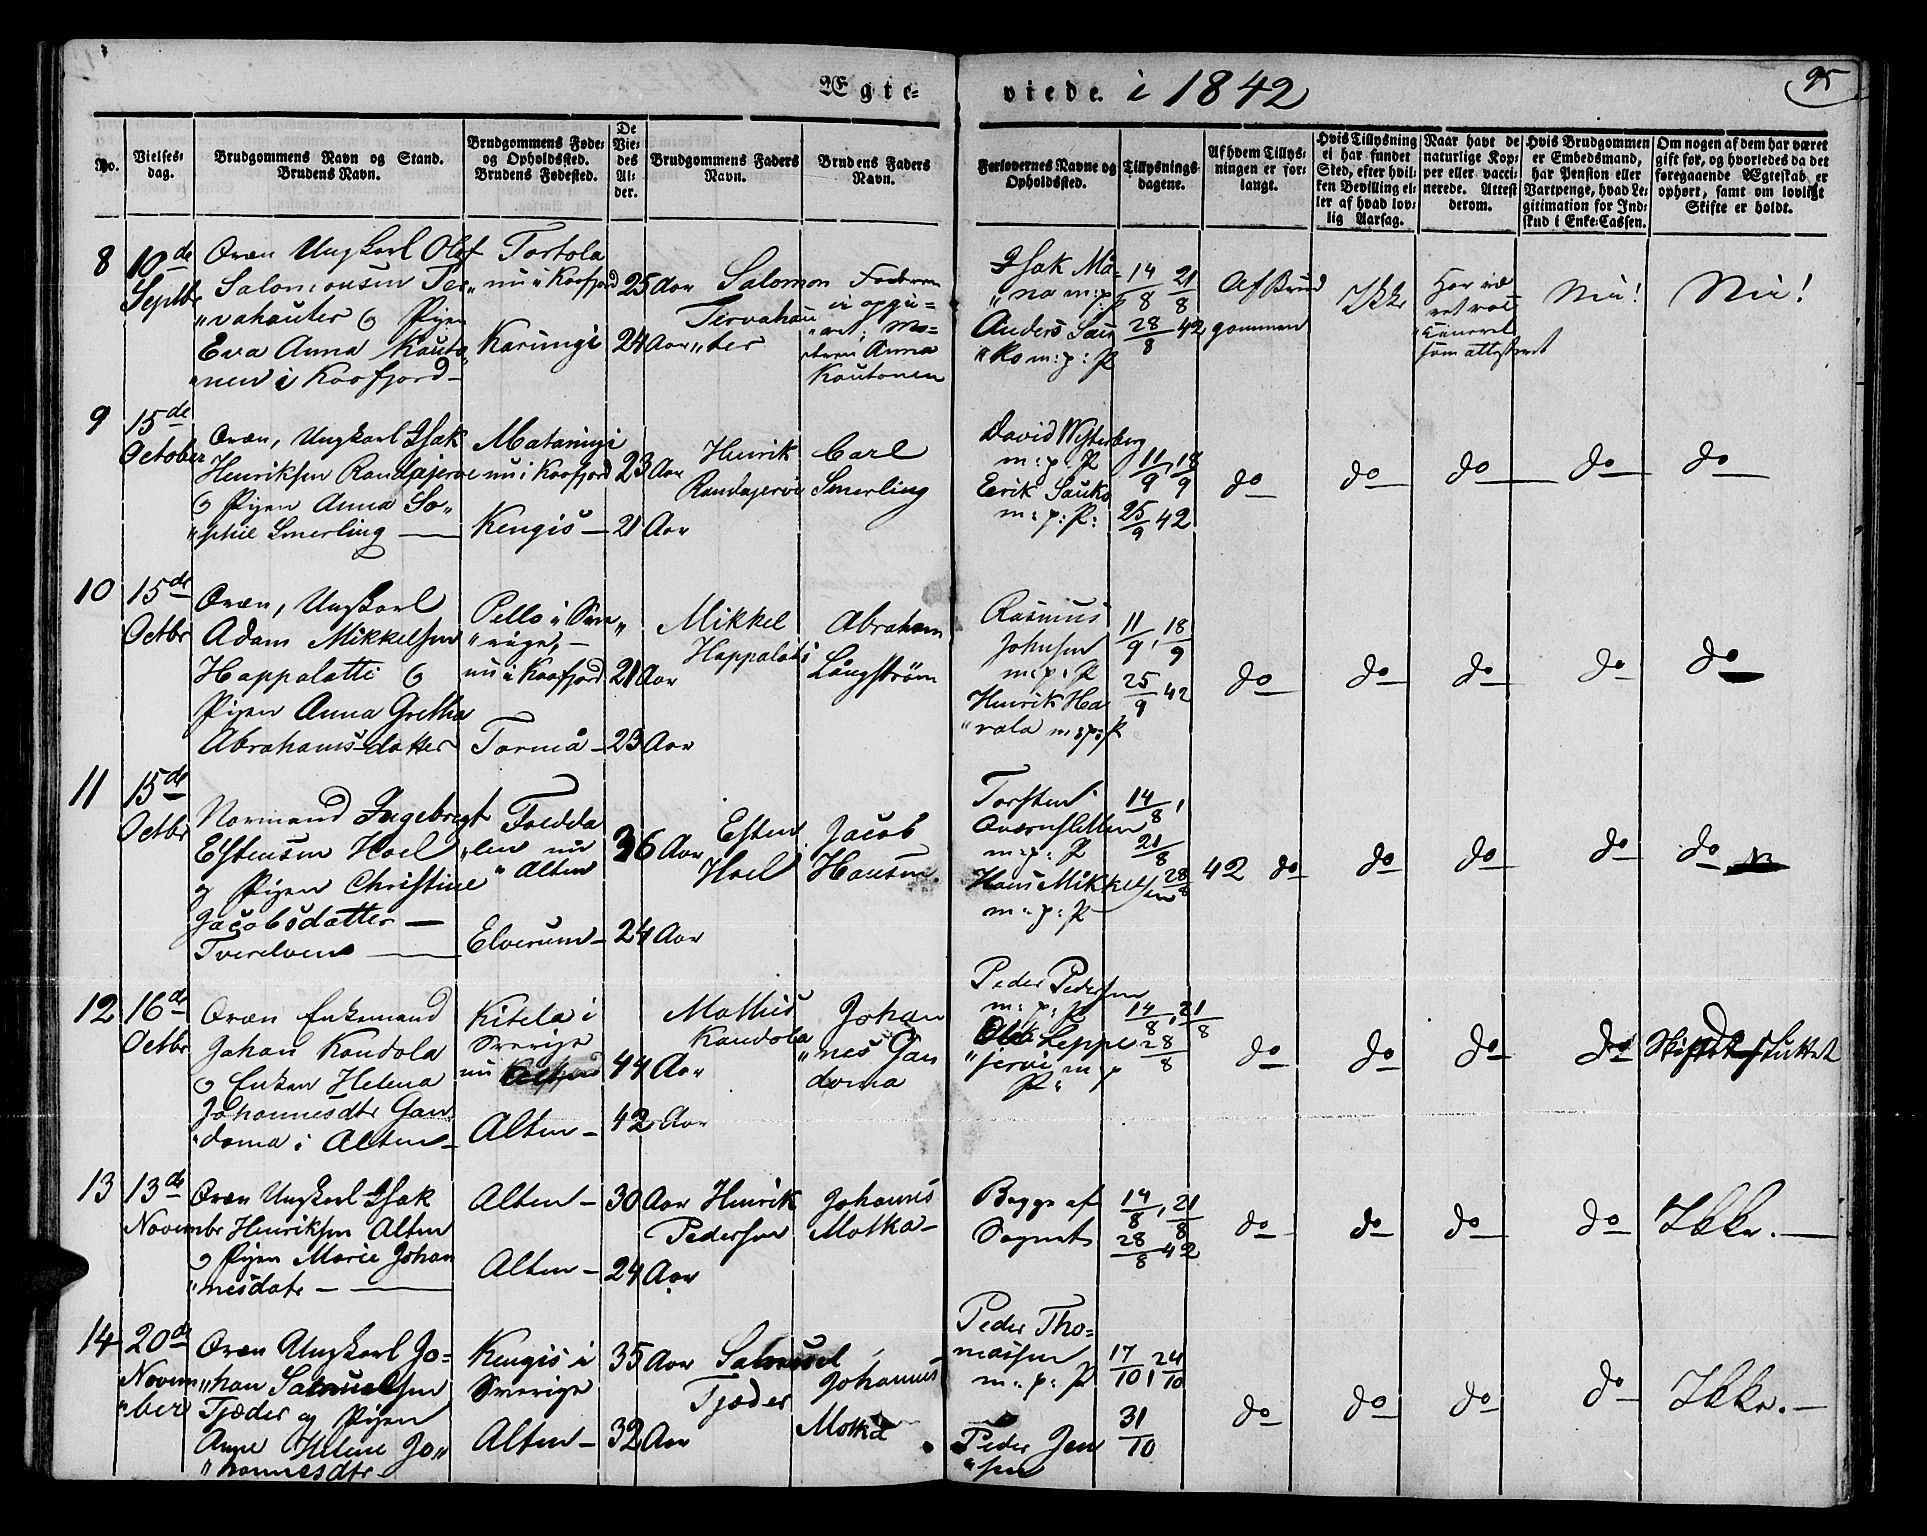 Ægte-
viede. i 1842
95
No.
Vielses-
dag.
Brudgommens Navn og Stand.
Brudens Navn.
Brudgommens Føde-
og Opholdssted.
Brudens Fødested.
De
Vie-
des
Al-
der.
Brudgommens Faders
Navn.
Brudens Faders
Navn.
Forlovernes Navne og
Opholdssted.
Tillysnings-
dagene.
Af hvem Tillys-
ningen er for-
langt.
Hvis Tillysning
ei har fundet
Sted, efter hvil-
ken Bevilling el-
ler af hvad lov-
lig Aarsag.
Naar havt de
naturlige Kop-
per eller vacci-
nerede. Attest
derom.
Hvis Brudgommen
er Embedsmand,
har Pension eller
Vartpenge, hvad Le-
gitimation for Ind-
skud i Enke-Cassen.
Om nogen af dem har været
gift før, og hvorledes da det
foregaaende Ægteskab er
ophørt, samt om lovligt
Skifte er holdt.
8
10de
Septbr
Qvæn Ungkarl Olof
Salomonsen Ter-
"vahauter og Pigen
Eva Anna Kauto
"nen i Kaafjord
Tortola
nu i Kaafjord
Karungi
25 Aar
24 Aar
Salomon
Tervahau
"ter
Faderen
ei opgi-
"vet; Mo-
deren Anna
Kautonen
Isak Ma-
"na m:p:P
Anders Sau
"ko m:p:P
14/8 21/8
28/8 42
Af Brud
gommen
Ikke
Har væ
ret vac
"cineret
som attesteret
Nei!
Nei!
9
15de
October
Qvæn, Ungkarl Isak
Henriksen Randajerve
og Pigen Anna So"
"phie Smerling
Mataringi
nu i Kaafjord
Kengis
23 Aar
21 Aar
Henrik
Randajervi
Carl
Smerling
David Westerberg
m:p:P
Eerik Sauko
m:p:P:
11/9, 18/9
25/9 42
do
do
do
do
do
10
15de
Octbr
Qvæn, Ungkarl
Adam Mikkelsen
Happalatti og
Pigen Anna Gretha
Abrahamsdatter
Pello i Sve
"rige,
nu i Kaafjord
Tornå
21 Aar
23 Aar
Mikkel
Happalatti
Abraham
Långström
Rasmus
Johnsen
m:p:P
Henrik Ha
"vala m:p:P
11/9, 18/9
25/9 42
do
do
do
do
do
11
15de
Octbr
Normand Ingebrigt
Estensen Hoel
og Pigen Christine
Jacobsdatter
Tverelven
Foldda
"len nu
" Alten
Elverum
36 Aar
24 Aar
Esten
Hoel
Jacob
Hansen
Torsten
Qværnsletten
m:p:P
Hans Mikkel
sen
m:p:P
14/8,
21/8
28/8
42
do
do
do
do
do
12
16de
Octbr
Qvæn Enkemand
Johan Kandola
og Enken Helena
Johannesdtr Gan
"doma i Alten
Kitela i
Sverige
nu
Alten
44 Aar
42 Aar
Mathis
Kandola
Johan
"nes Gan
doma
Peder Pedersen
m:p:P
Leppe
"jervi m:p
P"
14/8, 21/8
28/8
do
do
do
do
Skiftet sluttet
13
13de
Novembr
Qvæn Ungkarl Isak
Henriksen Alten
og Pigen Marie Johan
"nesdatr
Alten
Alten
30 Aar
24 Aar
Henrik
Pedersen
Johannes
Motka
Begge af
Sognet
14/8, 21/8
28/8 42
do
do
do
do
Ikke.
14
20de
Novem
"ber
Qvæn Ungkarl Jo-
"han Samuelsen
Tjæder og Pigen
Anne Helene Jo"
"hannesdtr
Kengis i
Sverige
Alten
35 Aar
32 Aar
Samuel
Tjæder
Johannes
Motka
Peder Tho-
massen
m:p:P
Peder Jen
"sen
17/10, 24/10
31/10
do
do
do
do
Ikke.